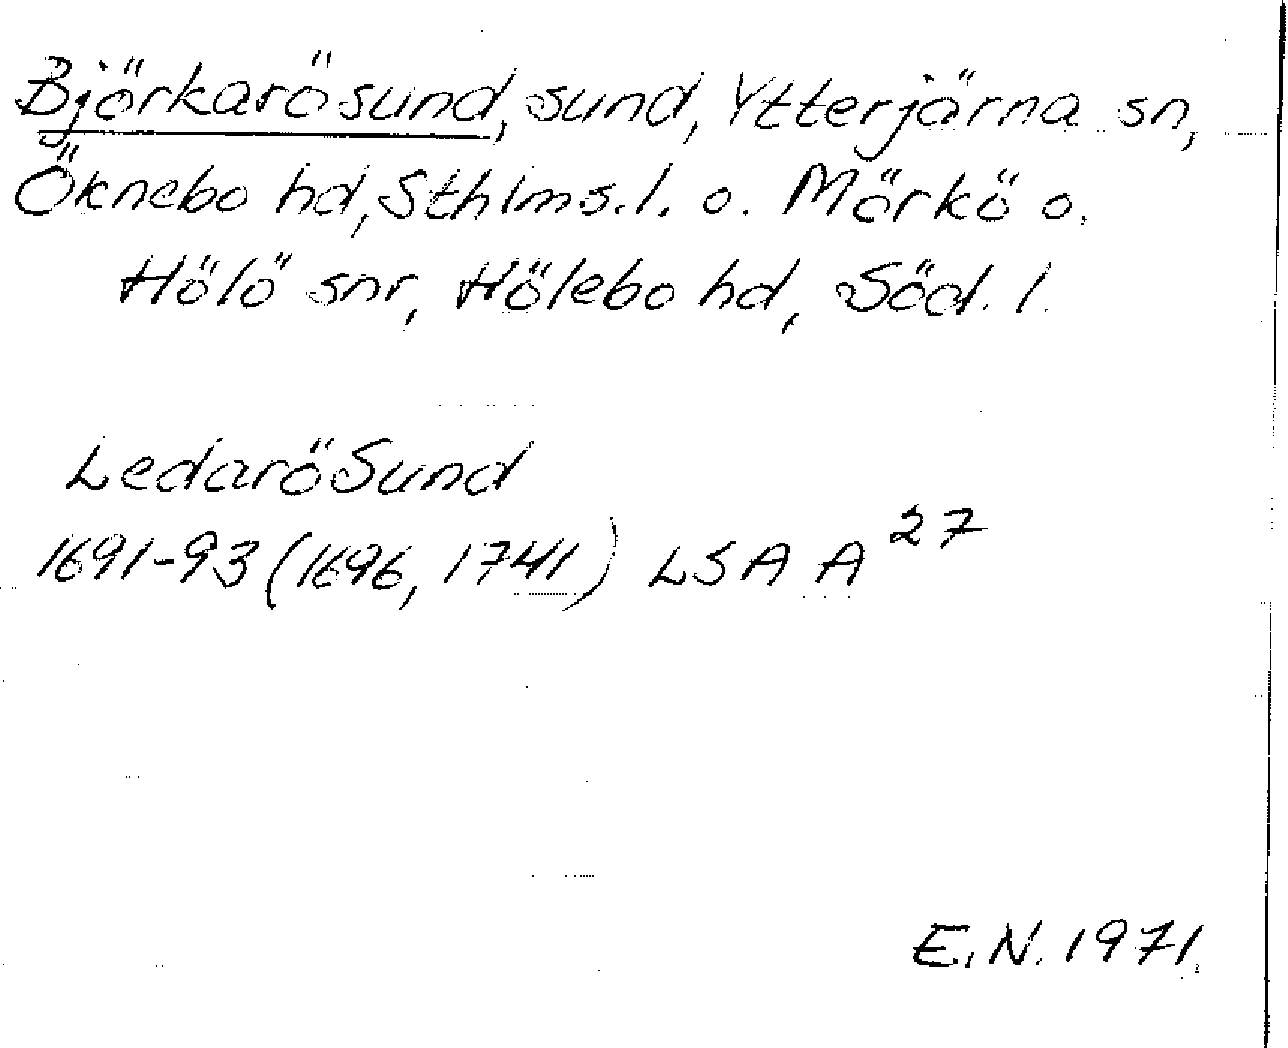 Björkarösund, sund, Ytterjärna sn,
Öknebo hd, Sthlms. l. o. Mörkö o.
Hölö snr, Hölebo hd, Söd. l.
Ledarö Sund
1691-93 (1696, 1741) LSA A 27
E. N. 1971.